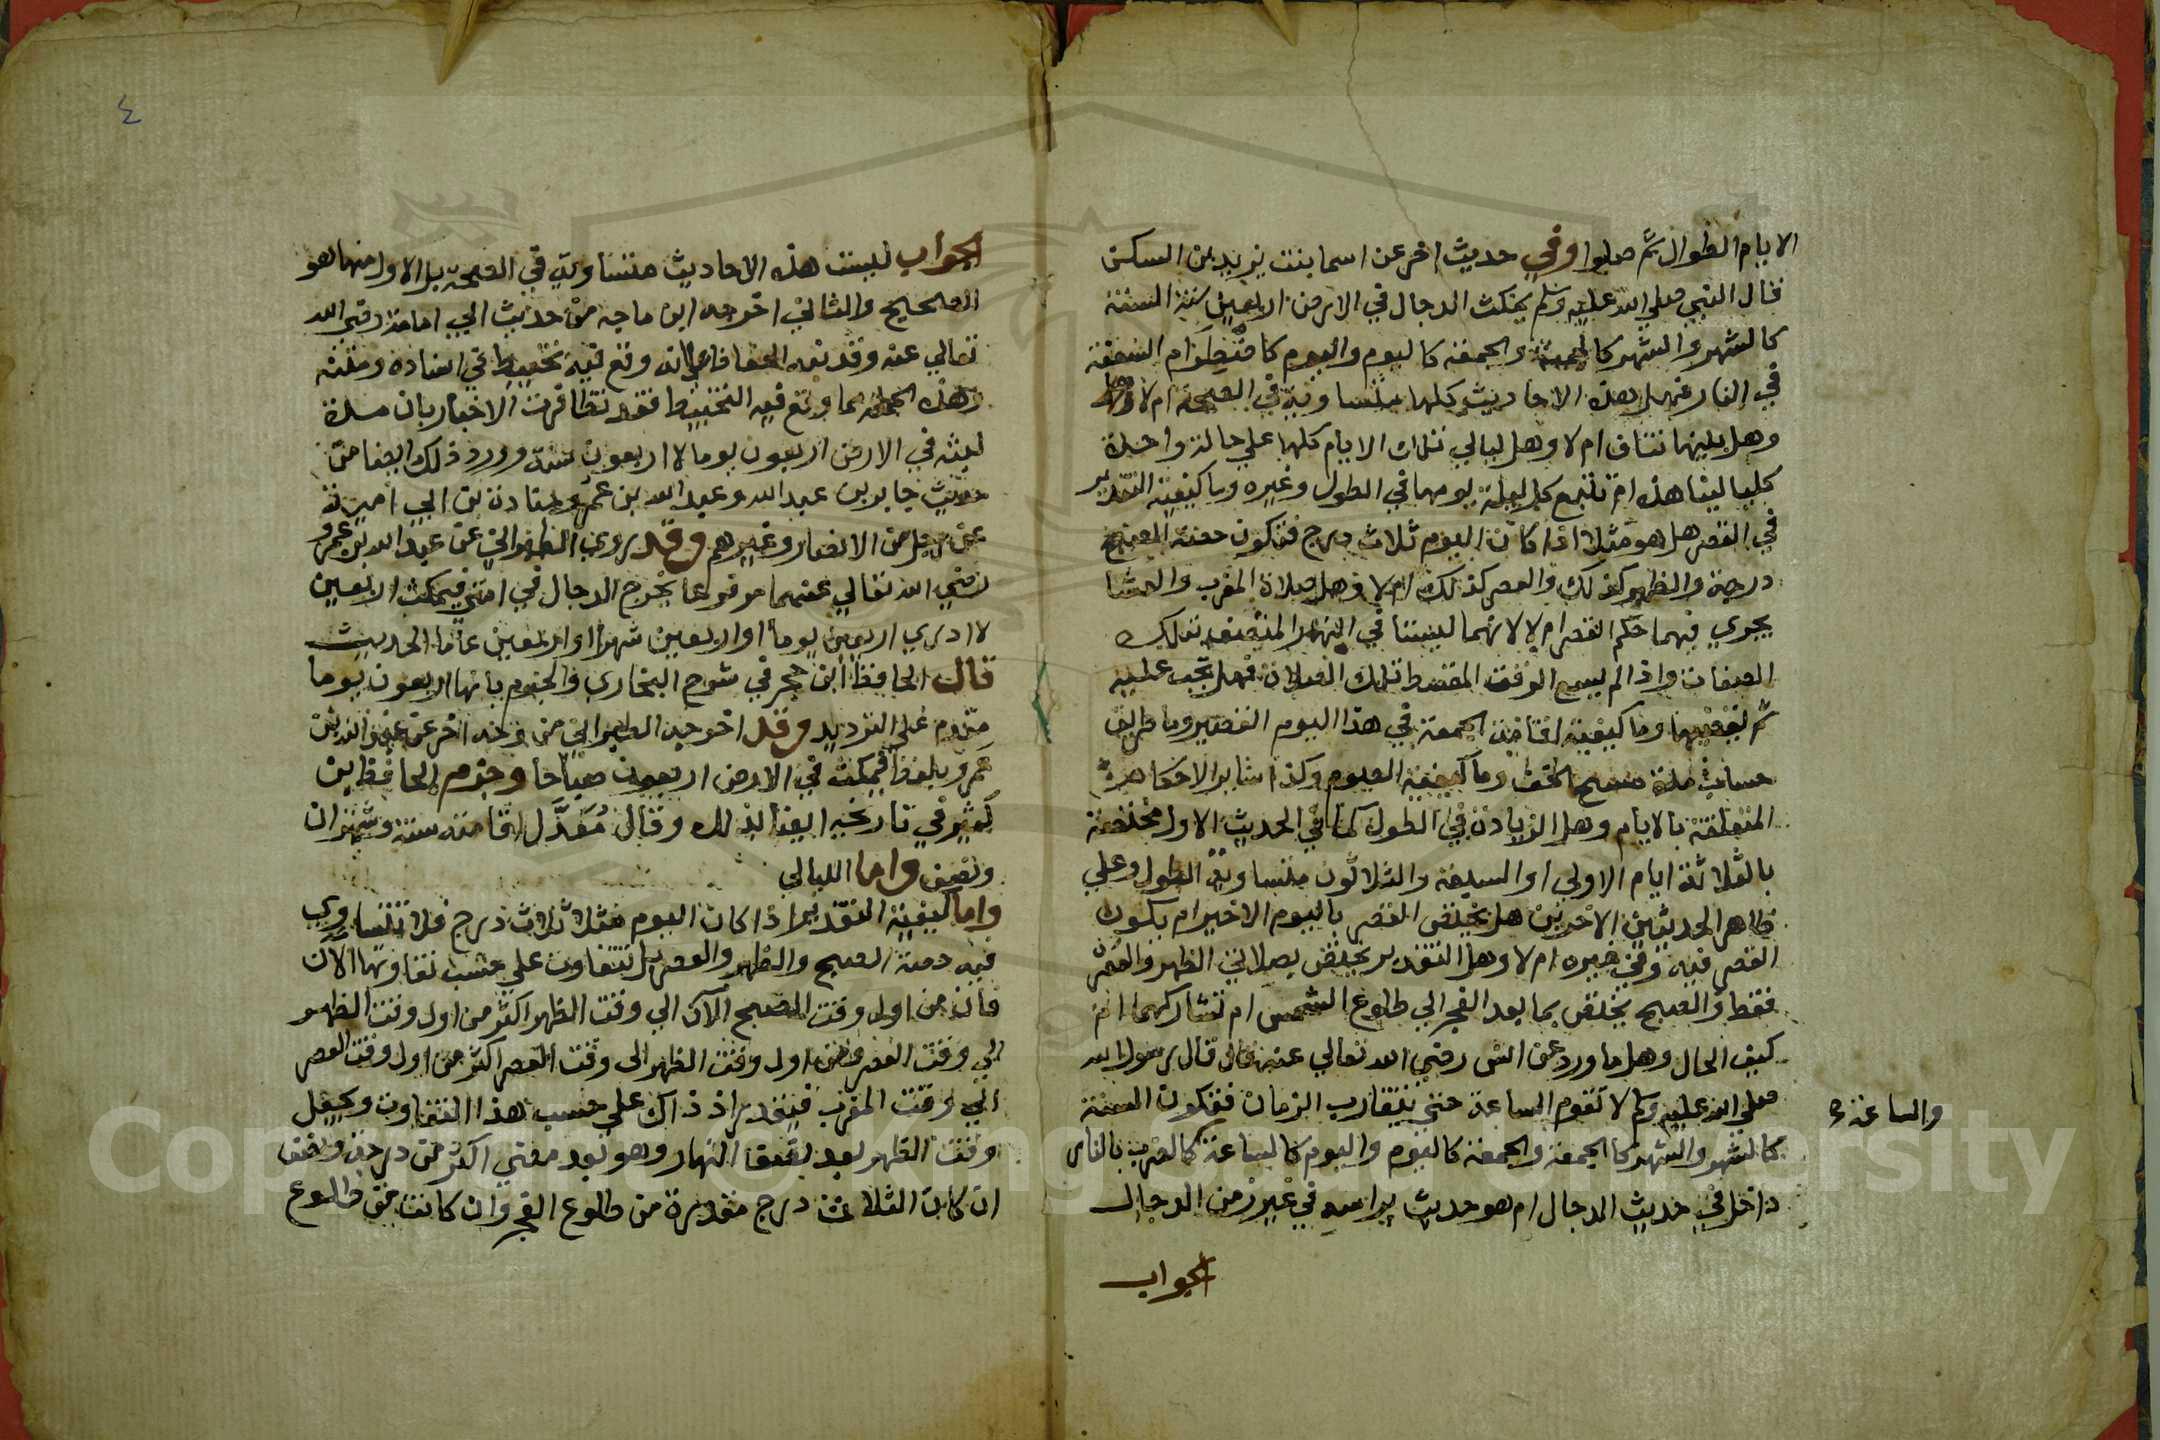 الايام الطوال ثم صلوا وفي حديث اخر عن اسما بنت يزيد بن السكن
قال النبي صلي الله عليه وسلم يمكث الدجال في الارض اربعين سنة السنة
كالشهر والشهر كالجمعة والجمعة كاليوم واليوم كاضطرام السعفة
في النار فهل هذه الاحاديث كلها متساوية في الصحة ام لا
وهل بينهما تناف ام لا وهل ليالي تلك الايام كلها علي حالة واحدة
كليالينا هذه ام تتبع كل ليلة يومها في الطول وغيره وما كيفية التقدير
في القصر هل هو مثلا اذا كان اليوم ثلاث درج فتكون حصة الصبح
درجة والظهر كذلك والعصر كذلك ام لا وهل صلاة المغرب والعشا
يجري فيهما حكم القصر ام لا لانهما ليستا في النهار المتصف بتلك
الصفات واذا لم يسع الوقت المقسط تلك الصلاة فهل تجب عليه
ثم يقضيها وما كيفية اقامة الجمعة في هذا اليوم القصير وما طريق
حساب مدة مسح الخف وما كيفية الصوم وكذا سائر الاحكام
المتعلقة بالايام وهل الزيادة في الطول كما في الحديث الاول مختصة
بالثلاثة ايام الاولي او السبعة والثلاثون متساوية الطول وعلي
ظاهر الحديثين الاخرين هل يختص القصر باليوم الاخير ام يكون
القصر فيه وفي غيره ام لا وهل التقدير يختص بصلاتي الظهر والعصر
فقط والصبح يختص بما بعد الفجر الي طلوع الشمس ام تشاركهما ام
كيف الحال وهل ما ورد عن انس رضي الله تعالي عنه قال قال رسول الله
صلي الله عليه وسلم لا تقوم الساعة حتي يتقارب الزمان فتكون السنة
كالشهر والشهر كالجمعة والجمعة كاليوم واليوم كالساعة كالضرب بالنار
والساعة
داخل في حديث الدجال ام هو حديث براسه في غير زمن الدجال
الجواب
٤
الجواب ليست هذه الاحاديث متساوية في الصحة بل الاول منها هو
الصحيح والثاني اخرجه ابن ماجه من حديث ابي امامة رضي الله
تعالي عنه وقد نبه الحفاظ علي انه وقع فيه تخبيط في اسناده ومتنه
وهذه الجملة مما وقع فيه التخبيط فقد تظافرت الاخبار بان مدة
لبثه في الارض اربعون يوما لا اربعون سنة وورد ذلك ايضا من
حديث جابر بن عبد الله وعبد الله بن عمرو وجنادة بن ابي امية
عن رجل من الانصار وغيرهم وقد روي الطبراني عن عبد الله بن عمرو
رضي الله تعالي عنهما مرفوعا يخرج الدجال في امتي فيمكث اربعين
لا ادري اربعين يوما او اربعين شهرا او اربعين عاما الحديث
قال الحافظ ابن حجر في شرح البخاري والجزم بانها اربعون يوما
مقدم علي الترديد وقد اخرجه الطبراني من وجه اخر عن عبد الله بن
عمرو بلفظ فيمكث في الارض اربعون صباحا وجزم الحافظ بن
كثير في تاريخه ايضا بذلك وقال مُعَدَّل اقامته سنة وشهران
ونصف واما الليالي
واما كيفية التقدير اذا كان اليوم مثلا ثلاث درج فلا تتساوي
فيه حصة الصبح والظهر والعصر بل تتفاوت علي حسب تفاوتها الآن
فان من اول وقت الصبح الآن الي وقت الظهر اكثر من اول وقت الظهر
الي وقت العصر ومن اول وقت الظهر الى وقت العصر اكثر من اول وقت العصر
الي وقت المغرب فيقدر اذ ذاك علي حسب هذا التفاوت ويدخل
وقت الظهر بعد نصف النهار وهو بعد مضي اكثر من درجة ونصف
ان كانت الثلاث درج مقدرة من طلوع الفجر وان كانت من طلوع